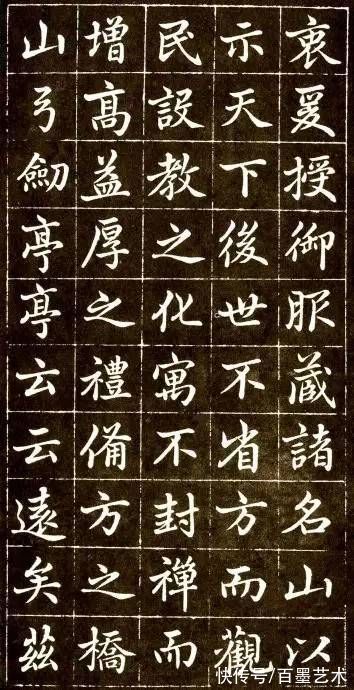 衷爰授御服藏諸名山以
示天下後世不省方而觀
民設教之化寓不封禪而
增高益厚之禮備方之橋
山弓劒亭亭云云遠矣茲
快传号/百墨艺术